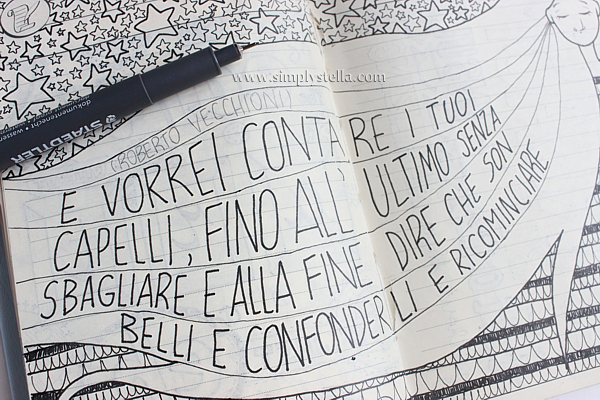 www.simplystella.com
dokumentenecht • wasser
STAEDTLER
(ROBERTO VECCHIONI)
E VORREI CONTARE I TUOI
CAPELLI, FINO ALL' ULTIMO SENZA
SBAGLIARE E ALLA FINE DIRE CHE SON
BELLI E CONFONDERLI E RICOMINCIARE